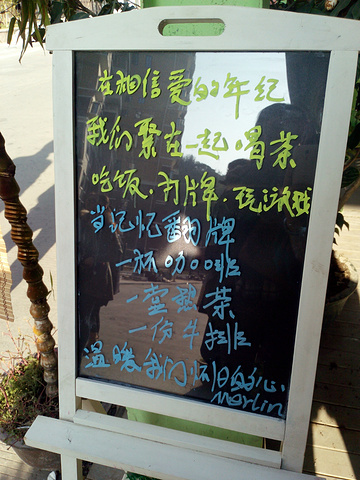 在相信爱的年纪
我们聚在一起喝茶
吃饭.打牌.玩游戏
当记忆翻牌
一杯咖啡
一壶热茶
一份牛排
温暖我们怀旧的心
Merlin